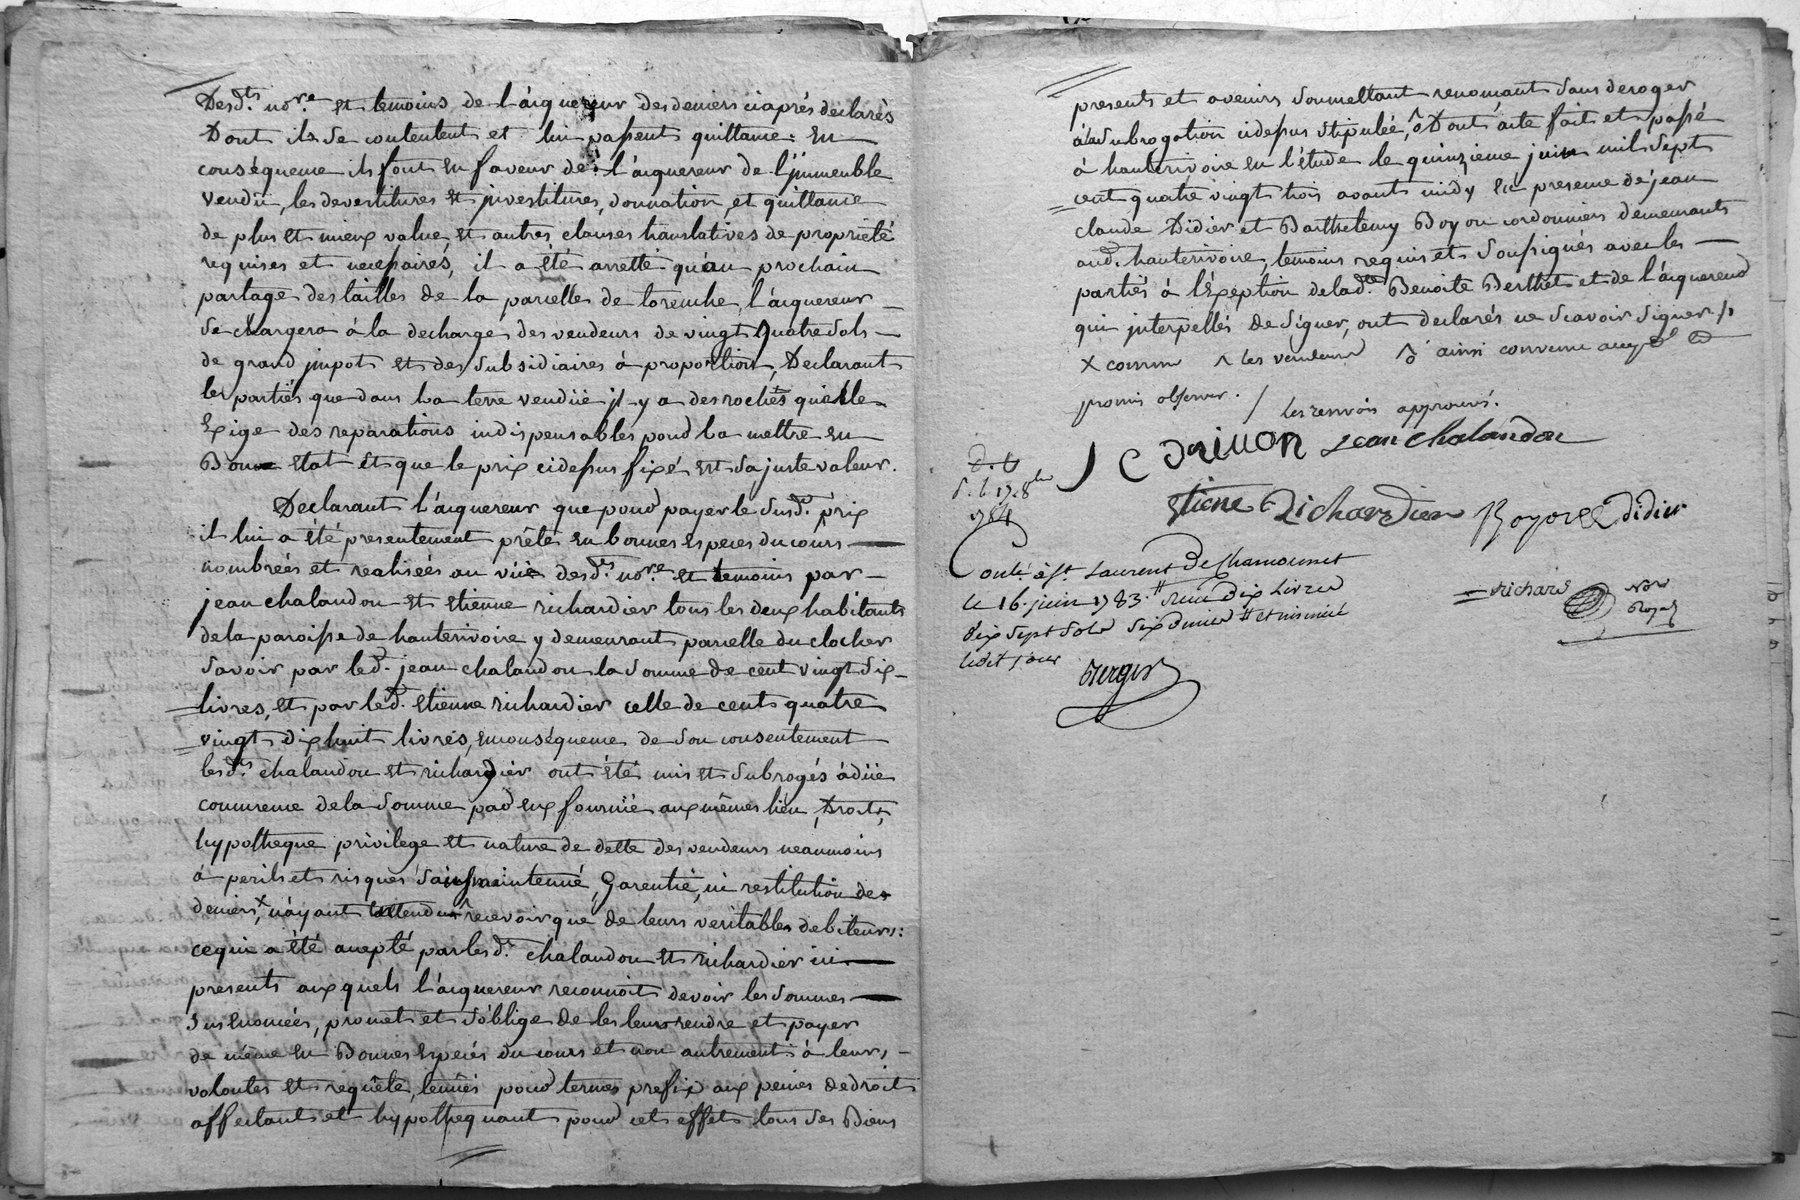 Desd.ts no.re et temoins de l'acquereur des deniers ciaprés declarés
Dont ils se contentent et lui passent quittance : en
conséquence ils font en faveur de l'acquereur de l'jmmeuble
vendu, les devestitures et jnvestitures, donnation, et quittance
de plus et mieux value, et autres clauses translatives de proprieté
requises et necessaires, il a été arretté qu'au prochain
partage des tailles de la parcelle de torenche, l'acquereur
se chargera à la decharge des vendeurs de vingt quatre sols
de grand jmpot et des subsidiaires à proportion, Declarant
les partiés que dans la terre venduë jl y a des rochés qu'elle
Exige des reparations indispensables pour la mettre en
Bonne etat et que le prix cidessus fixé est sa juste valeur.
Declarant l'acquereur que pour payer le susd. prix
il lui a été presentement prêté en bonnes especes du cours
nombréés et realiséés au vüe desd.ts no.re et temoins par
jean chalandon et etienne richardier tous les deux habitants
de la paroisse de hauterivoire y demeurant parcelle du clocher
Savoir par led. jean chalandon la somme de cent vingt dix
livres, et par led. etienne richardier celle de cent quatre
vingt dix huit livres, en conséquence de son consentement
lesd.ts chalandon et richardier ont été mis et subrogés à düe
concurrence de la somme par eux fournié aux mêmes lieu, Droits,
hypotheque privilege et nature de dette des vendeurs neanmoins
à perils et risques sans maintenué, Garentié, ni restitution de
deniers, x n'ayant entendus ^ recevoir que de leurs veritables debiteurs :
ce qui a été accepté par lesd. chalandon et richardier ici
presents aux quels l'acquereur reconnoit devoir les sommes
sus enoncéés, promet et s'oblige de les leurs rendre et payer
de même en Bonnes especés du cours et non autrement à leurs
volontés et requête, lenüés pour termes prefix aux peines de droit
affectant et hypothequant pour cet effet tous ses Biens
presents et avenirs soumettant renonçant sans deroger
à la subrogation cidessus stipulée, ô Dont acte fait et passé
à hauterivoire en l'étude le quinzieme juin mil sept
cent quatre vingt trois avant midy en presence de jean
claude Didier et Barthelemy Boyon cordonniers demeurants
aud. hauterivoire, temoins requis et soussignés avec les
partiés à l'Exception de lad.te Benoite Berthet et de l'acquereur
qui jnterpellés de signer, ont declarés ne scavoir signer /.
x comme ^ les vendeurs ô ainsi convenu accepté et
promis observer. / les renvois approuvés.
J C Drivon jean chalandon
etiene Richardier Boyon Didier
Richard Nore Royal
d. l.
s. l. 17. 8bre
1784
Conté à St. Laurent De Chamousset
le 16. juin 1783. # reçu dix Livres
dix sept sols six deniers # et insinué
ledit jour
Berger